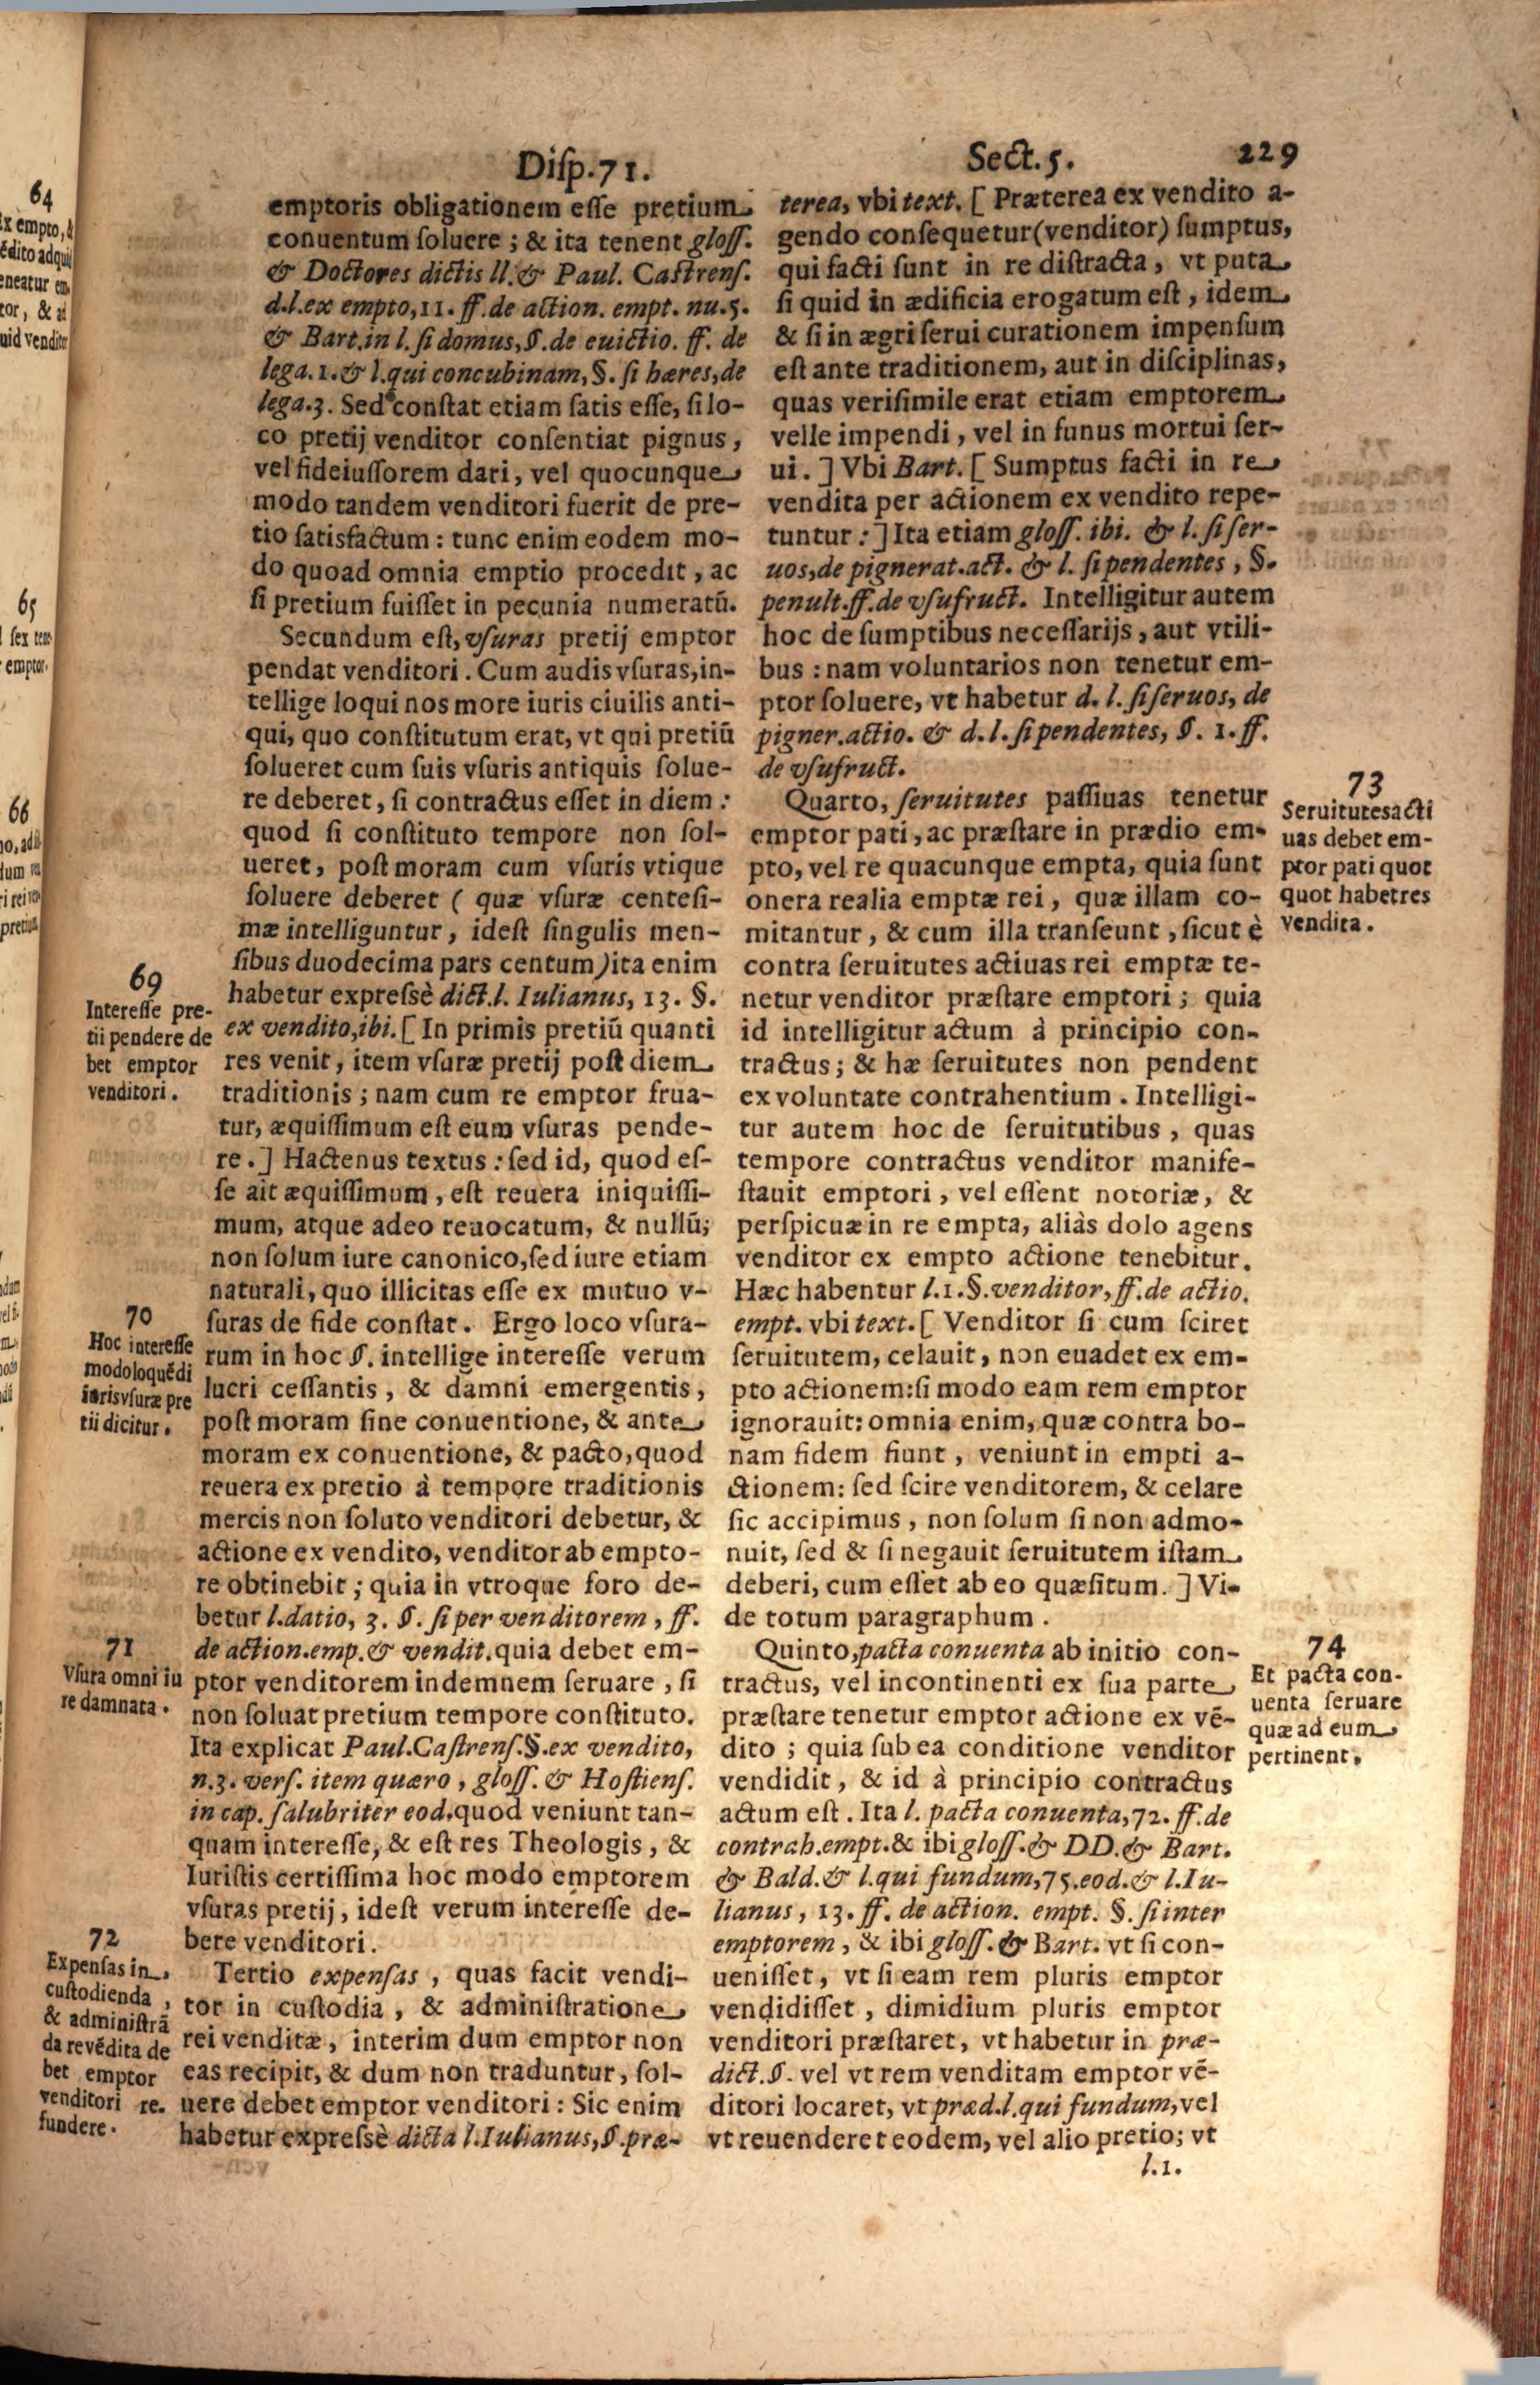 Disp. 71.
Sect. 5.
229
emptoris obligationem esse pretium
conuentum soluere ; & ita tenent gloss.
& Doctores dictis ll. & Paul. Castrens.
d.l.ex empto, 11. ff. de action. empt. nu. 5.
& Bart. in l. si domus, §. de euictio. ff. de
lega. 1. & l. qui concubinam, §. si hæres, de
lega. 3. Sed constat etiam satis esse, si lo-
co pretij venditor consentiat pignus ,
vel fideiussorem dari, vel quocunque
modo tandem venditori fuerit de pre-
tio satisfactum : tunc enim eodem mo-
do quoad omnia emptio procedit , ac
si pretium fuisset in pecunia numeratū.
Secundum est, vsuras pretij emptor
pendat venditori . Cum audis vsuras, in-
tellige loqui nos more iuris ciuilis anti-
qui, quo constitutum erat, vt qui pretiū
solueret cum suis vsuris antiquis solue-
re deberet, si contractus esset in diem :
quod si constituto tempore non sol-
ueret, post moram cum vsuris vtique
soluere deberet ( quæ vsuræ centesi-
mæ intelliguntur, idest singulis men-
sibus duodecima pars centum) ita enim
habetur expressè dict. l. Iulianus, 13. §.
ex vendito, ibi. [ In primis pretiū quanti
res venit, item vsuræ pretij post diem
traditionis ; nam cum re emptor frua-
tur, æquissimum est eum vsuras pende-
re . ] Hactenus textus : sed id, quod es-
se ait æquissimum , est reuera iniquissi-
mum, atque adeo reuocatum, & nullū;
non solum iure canonico, sed iure etiam
naturali, quo illicitas esse ex mutuo v-
suras de fide constat . Ergo loco vsura-
rum in hoc §. intellige interesse verum
lucri cessantis , & damni emergentis ,
post moram sine conuentione, & ante
moram ex conuentione, & pacto, quod
reuera ex pretio à tempore traditionis
mercis non soluto venditori debetur, &
actione ex vendito, venditor ab empto-
re obtinebit ; quia in vtroque foro de-
betur l. datio, 3. §. si per venditorem , ff.
de action. emp. & vendit. quia debet em-
ptor venditorem indemnem seruare , si
non soluat pretium tempore constituto.
Ita explicat Paul. Castrens. §. ex vendito,
n. 3. vers. item quæro , gloss. & Hostiens.
in cap. salubriter eod. quod veniunt tan-
quam interesse, & est res Theologis , &
Iuristis certissima hoc modo emptorem
vsuras pretij, idest verum interesse de-
bere venditori .
Tertio expensas , quas facit vendi-
tor in custodia , & administratione
rei venditæ, interim dum emptor non
eas recipit, & dum non traduntur, sol-
uere debet emptor venditori : Sic enim
habetur expressè dicta l. Iulianus, §. præ-
69
Interesse pre-
tii pendere de
bet emptor
venditori .
70
Hoc interesse
modo loquēdi
iuris vsuræ pre
tii dicitur .
71
Vsura omni iu
re damnata .
72
Expensas in
custodienda ,
& administrā
da re vēdita de
bet emptor
venditori re-
fundere .
terea, vbi text. [ Præterea ex vendito a-
gendo consequetur (venditor) sumptus,
qui facti sunt in re distracta , vt puta
si quid in ædificia erogatum est , idem
& si in ægri serui curationem impensum
est ante traditionem, aut in disciplinas,
quas verisimile erat etiam emptorem
velle impendi , vel in funus mortui ser-
ui . ] Vbi Bart. [ Sumptus facti in re
vendita per actionem ex vendito repe-
tuntur : ] Ita etiam gloss. ibi. & l. si ser-
uos, de pignerat. act. & l. si pendentes , §.
penult. ff. de vsufruct. Intelligitur autem
hoc de sumptibus necessarijs , aut vtili-
bus : nam voluntarios non tenetur em-
ptor soluere, vt habetur d. l. si seruos, de
pigner. actio. & d. l. si pendentes, §. 1. ff.
de vsufruct.
Quarto, seruitutes passiuas tenetur
emptor pati, ac præstare in prædio em-
pto, vel re quacunque empta, quia sunt
onera realia emptæ rei , quæ illam co-
mitantur , & cum illa transeunt , sicut è
contra seruitutes actiuas rei emptæ te-
netur venditor præstare emptori ; quia
id intelligitur actum à principio con-
tractus ; & hæ seruitutes non pendent
ex voluntate contrahentium . Intelligi-
tur autem hoc de seruitutibus , quas
tempore contractus venditor manife-
stauit emptori , vel essent notoriæ, &
perspicuæ in re empta, aliàs dolo agens
venditor ex empto actione tenebitur.
Hæc habentur l. 1. §. venditor, ff. de actio.
empt. vbi text. [ Venditor si cum sciret
seruitutem, celauit , non euadet ex em-
pto actionem: si modo eam rem emptor
ignorauit: omnia enim, quæ contra bo-
nam fidem fiunt , veniunt in empti a-
ctionem: sed scire venditorem, & celare
sic accipimus , non solum si non admo-
nuit, sed & si negauit seruitutem istam
deberi, cum esset ab eo quæsitum. ] Vi-
de totum paragraphum .
Quinto, pacta conuenta ab initio con-
tractus, vel incontinenti ex sua parte
præstare tenetur emptor actione ex vē-
dito ; quia sub ea conditione venditor
vendidit , & id à principio contractus
actum est . Ita l. pacta conuenta, 72. ff. de
contrah. empt. & ibi gloss. & DD. & Bart.
& Bald. & l. qui fundum, 75. eod. & l. Iu-
lianus , 13. ff. de action. empt. §. si inter
emptorem , & ibi gloss. & Bart. vt si con-
uenisset, vt si eam rem pluris emptor
vendidisset , dimidium pluris emptor
venditori præstaret, vt habetur in præ-
dict. §. vel vt rem venditam emptor vē-
ditori locaret, vt præd. l. qui fundum, vel
vt reuenderet eodem, vel alio pretio; vt
l. 1.
73
Seruitutes acti
uas debet em-
ptor pati quot
quot habet res
vendita .
74
Et pacta con-
uenta seruare
quæ ad eum
pertinent .
64
65
66